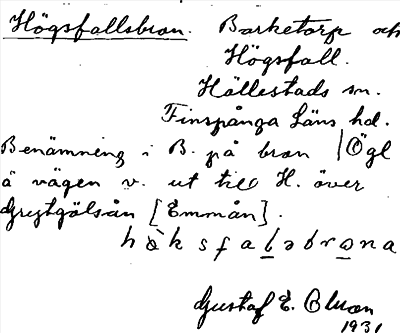 Högsfallsbron. Barketorp och
Högsfall.
Hällestads sn.
Finspånga Läns hd.
Benämning i B. på bron / Ögl
å vägen v. ut till H. över
Grytgölsån [Emmån].
Gustaf E. Olsson
1931